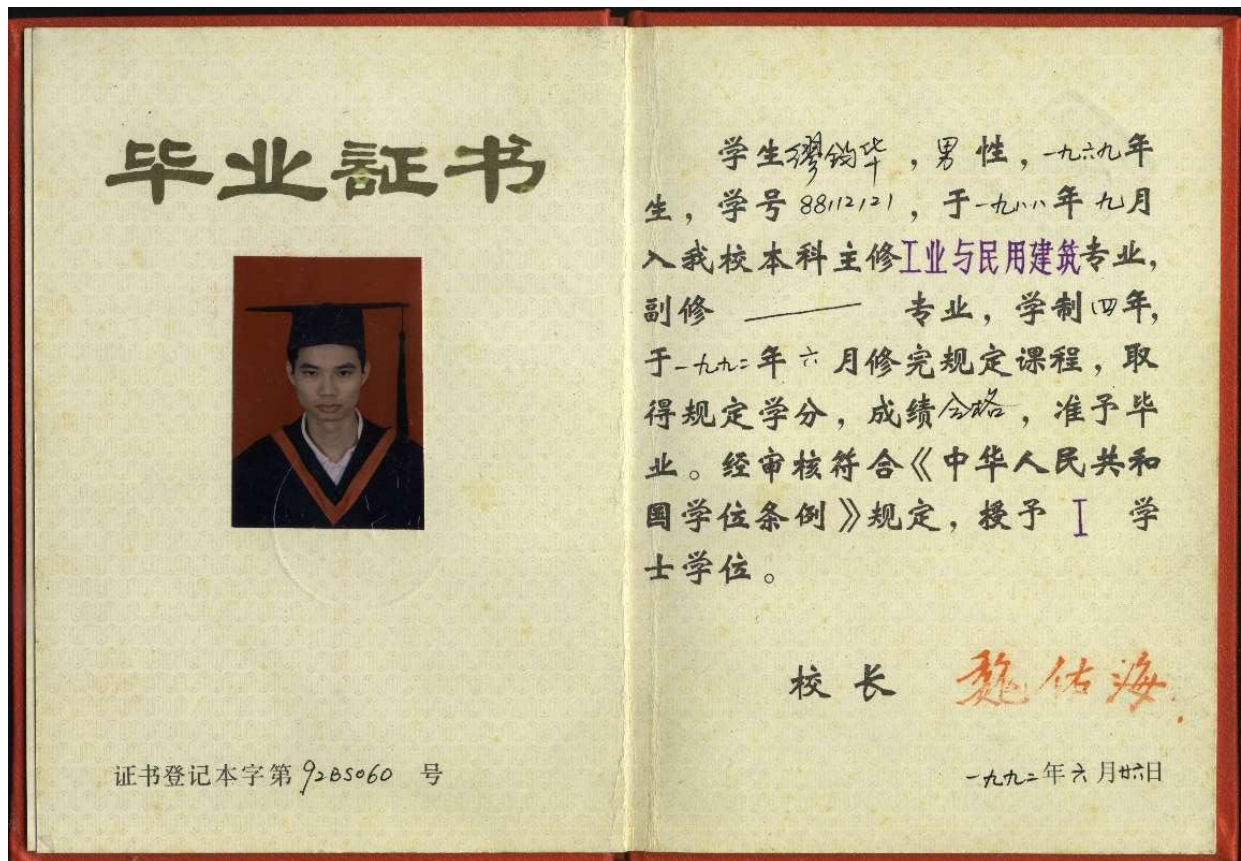 毕业証书
证书登记本字第92BS060号
学生缪钧华，男性，一九六九年
生，学号88112121，于一九八八年九月
入我校本科主修工业与民用建筑专业，
副修——专业，学制四年，
于一九九二年六月修完规定课程，取
得规定学分，成绩合格，准予毕
业。经审核符合《中华人民共和
国学位条例》规定，授予工学
士学位。
校长 魏佑海
一九九二年六月廿六日